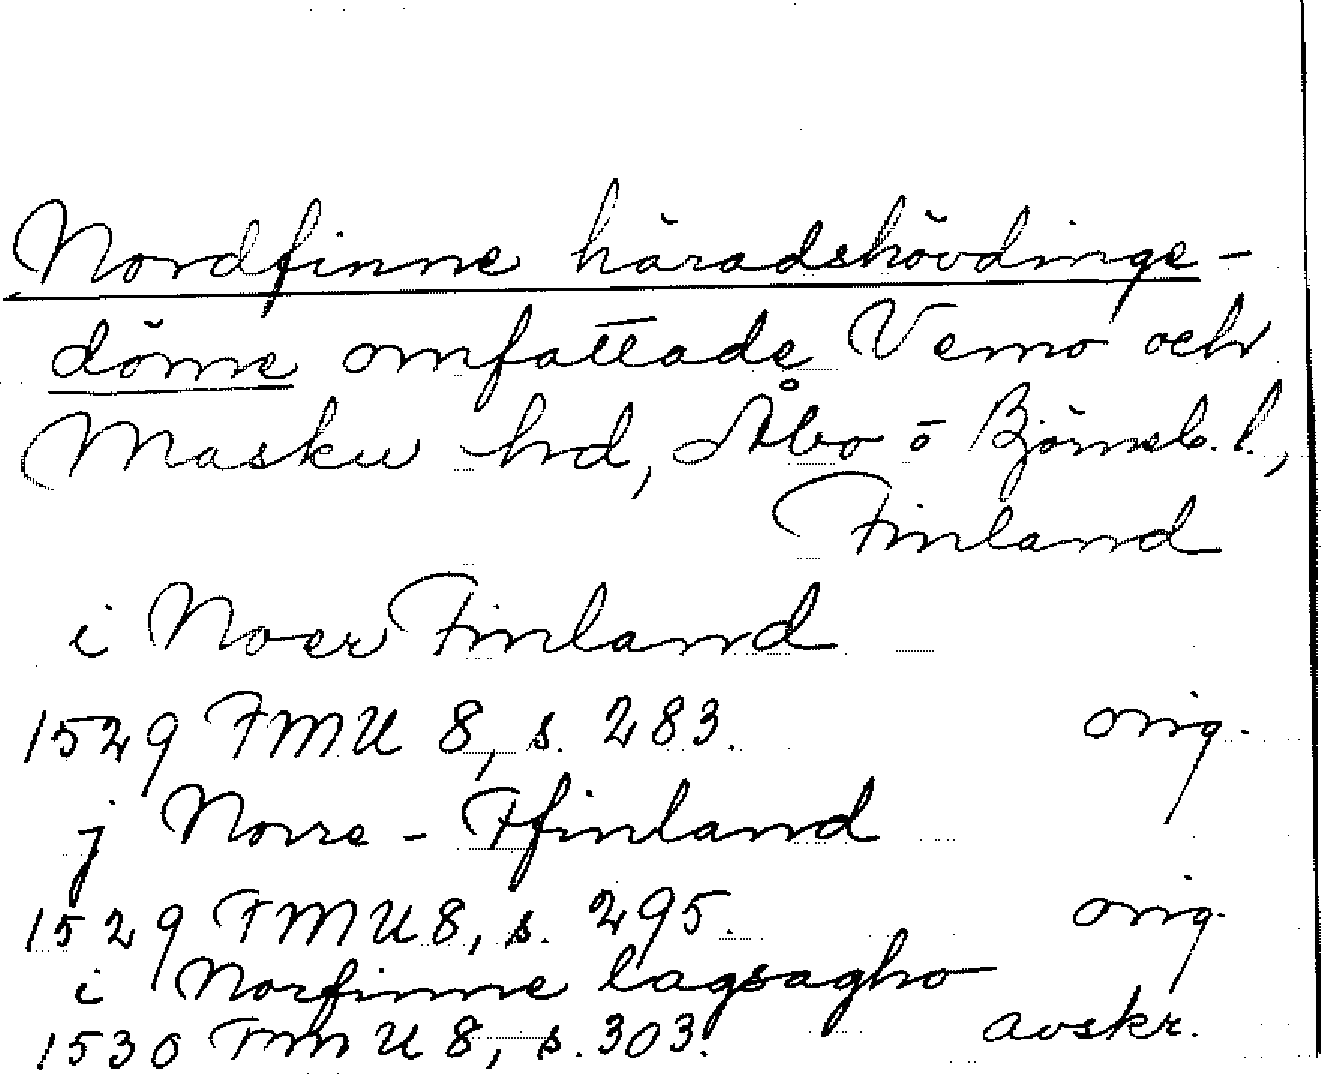 Nordfinne häradshövdinge-
döme omfattade Vemo och
Masku hd, Åbo o Björneb. l.,
Finland
i Noer Finland
1529 FMU 8, s. 283. orig.
j Norre - Ffinland
1529 FMU 8, s. 295. orig.
i Norfinne lagsagho
1530 FMU 8, s. 303. avskr.